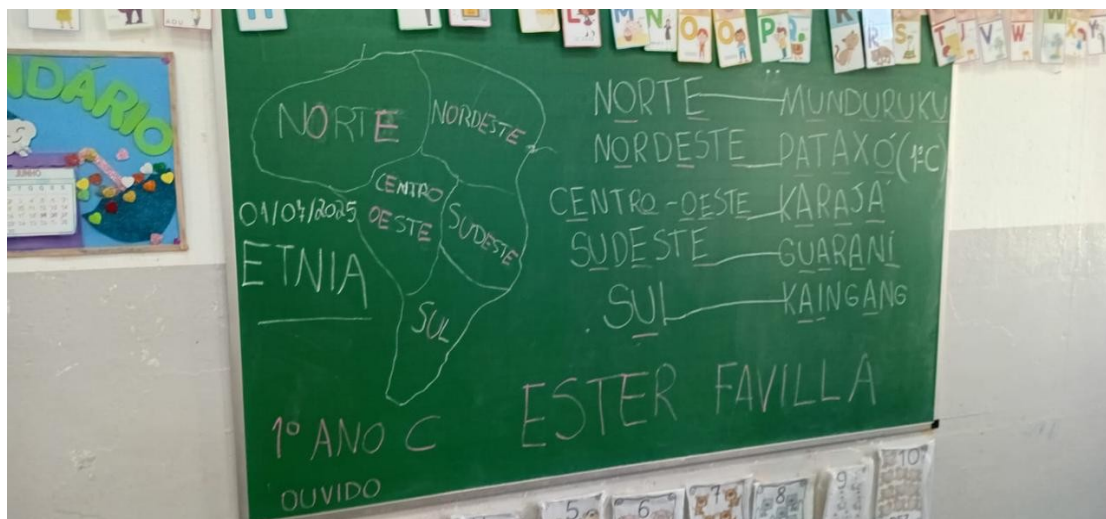 NDÁRIO
JUNHO
L M N O O P R S T V W X Y
NORTE
NORDESTE
CENTRO
OESTE
SUDESTE
SUL
01/07/2025
ETNIA
NORTE — MUNDURUKU
NORDESTE — PATAXÓ (1ºC)
CENTRO-OESTE — KARAJÁ
SUDESTE — GUARANÍ
SUL — KAINGANG
ESTER FAVILLA
1º ANO C
OUVIDO
5 6 7 8 9 10